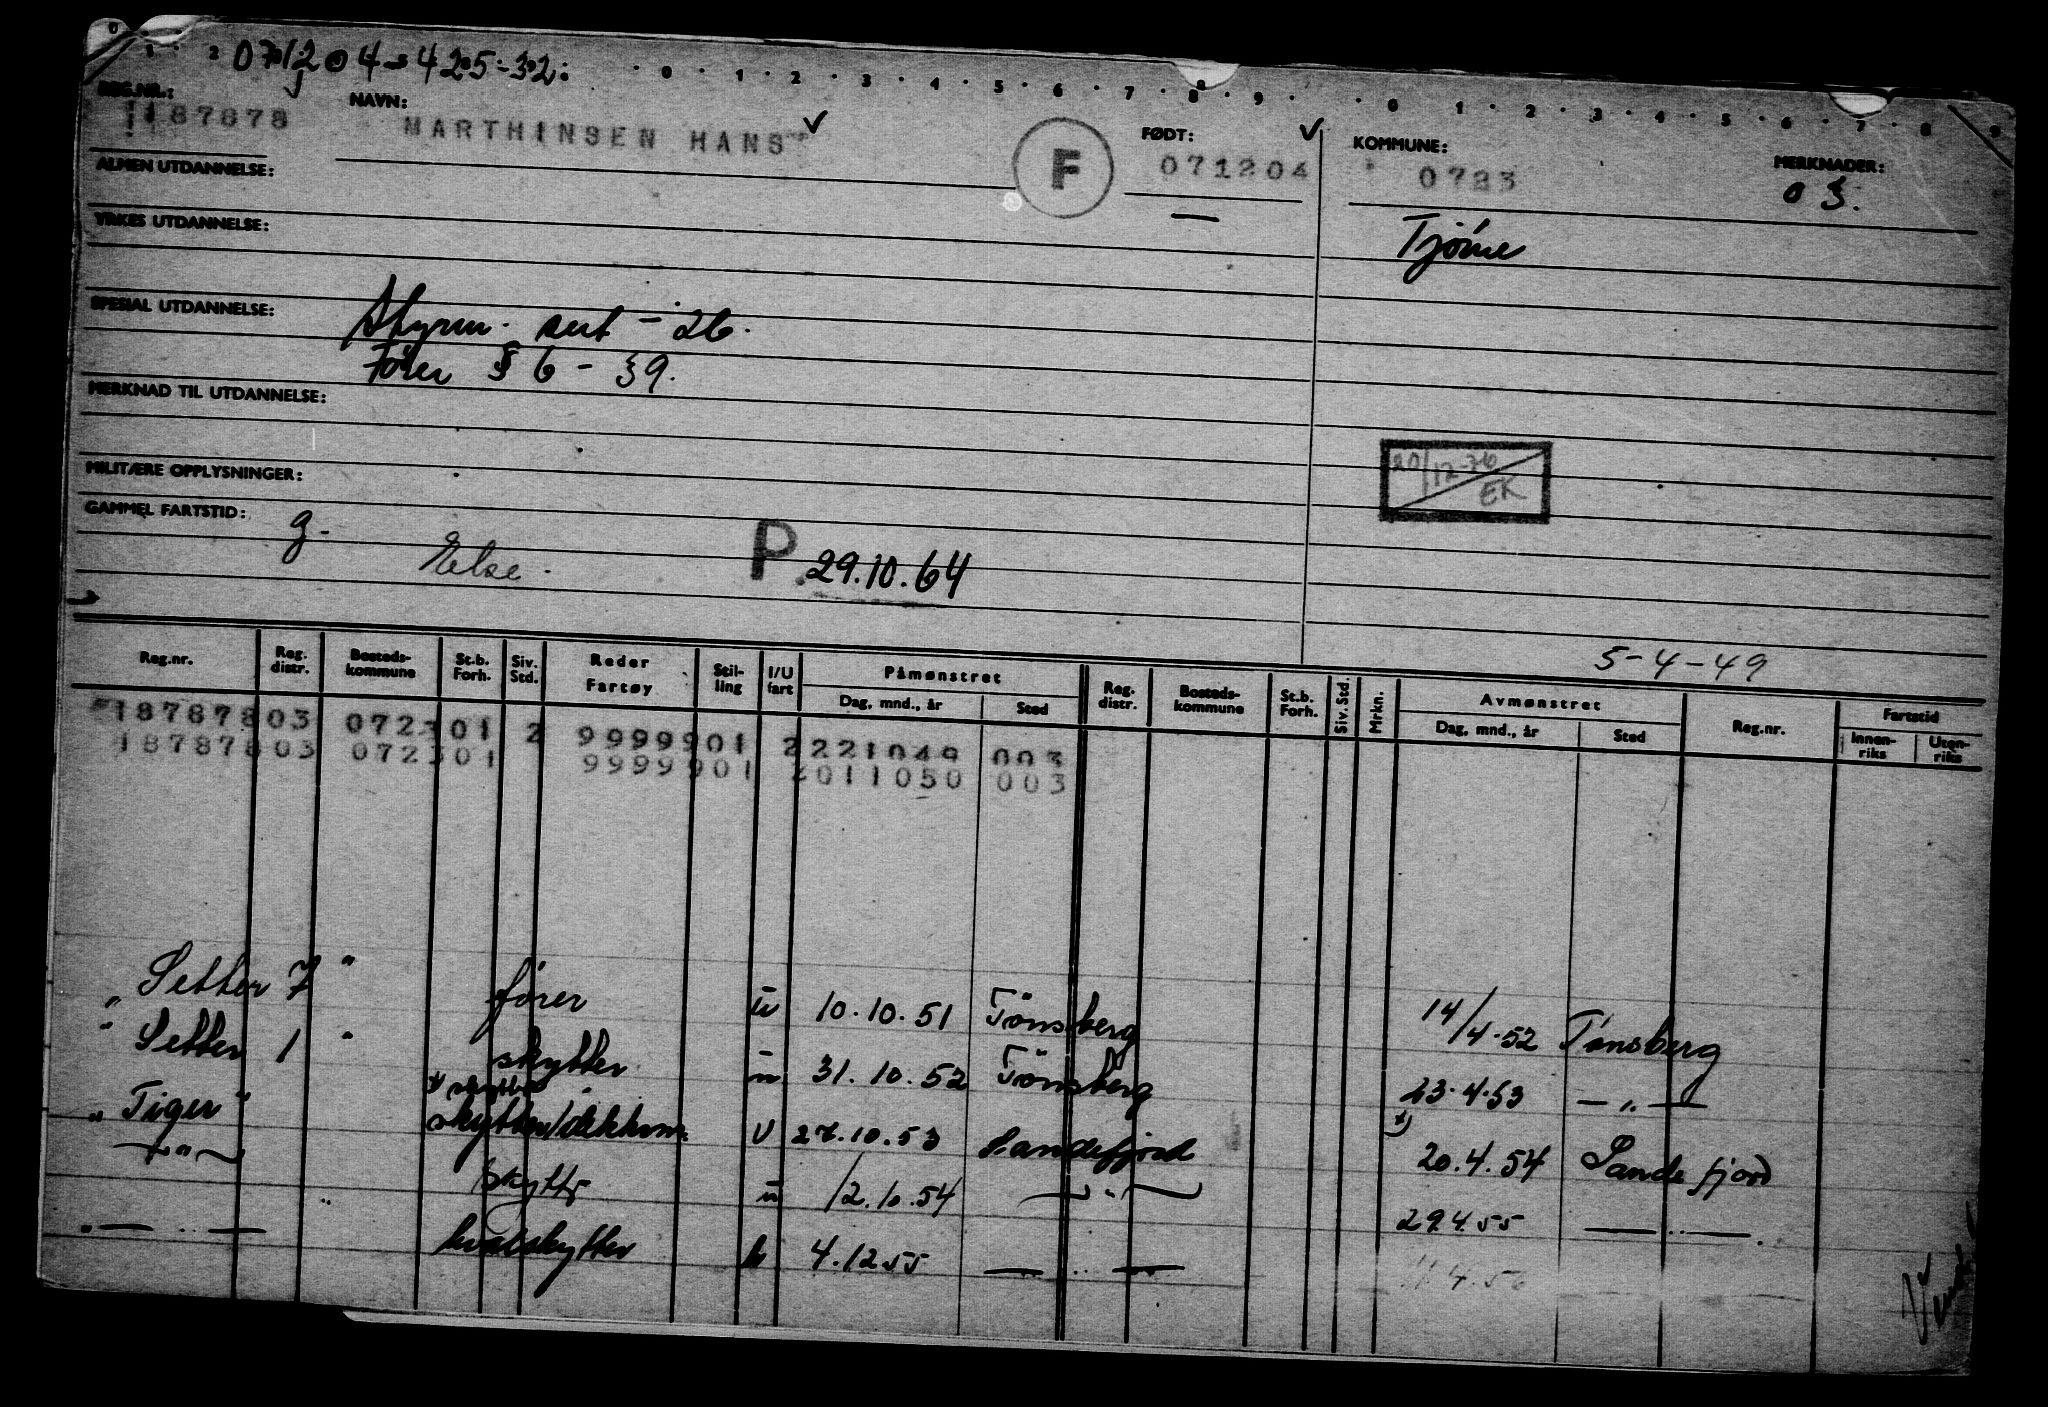 0 1 2 0 1 2 3 4 5 6 7 8 9 0 1 2 3 4 5 6 7 8 9
071204-42532:
REG.NR.: NAVN: FØDT: KOMMUNE: MERKNADER:
187878 MARTHINSEN HANS F 071204 0723 03.
ALMEN UTDANNELSE:
Tjøme
YRKES UTDANNELSE:
SPESIAL UTDANNELSE: Styrm. sert - 26.
Fører § 6 - 39.
MERKNAD TIL UTDANNELSE:
20/12-76 EK
MILITÆRE OPPLYSNINGER:
GAMMEL FARTSTID: g-
Else. P. 29.10.64
5-4-49
Reg.nr. Reg. distr. Bosteds-kommune St.b. Forh. Siv. Std. Reder Fartøy Stil-ling I/U fart Påmønstret Dag, mnd., år Sted Reg. distr. Bosteds-kommune St.b. Forh. Siv. Std. Mrkn. Avmønstret Dag, mnd., år Sted Reg.nr. Fartstid Innen-riks Uten-riks
18787803 072301 2 9999901 2221049 003
18787803 072301 9999901 2011050 003
" Setter 7 " fører u 10.10.51 Tønsberg 14/4-52 Tønsberg
" Setter 1 " skytter u 31.10.52 Tönsberg 23.4.53 — " —
x) skytter x)
" Tiger " skytter/dekksm. U 27.10.53 Sandefjord 20.4.54 Sandefjord
— " — skytter u 12.10.54 — " — 29.4.55 — " —
" — " — hvalskytter h 4.12.55 — " — 11.4.56